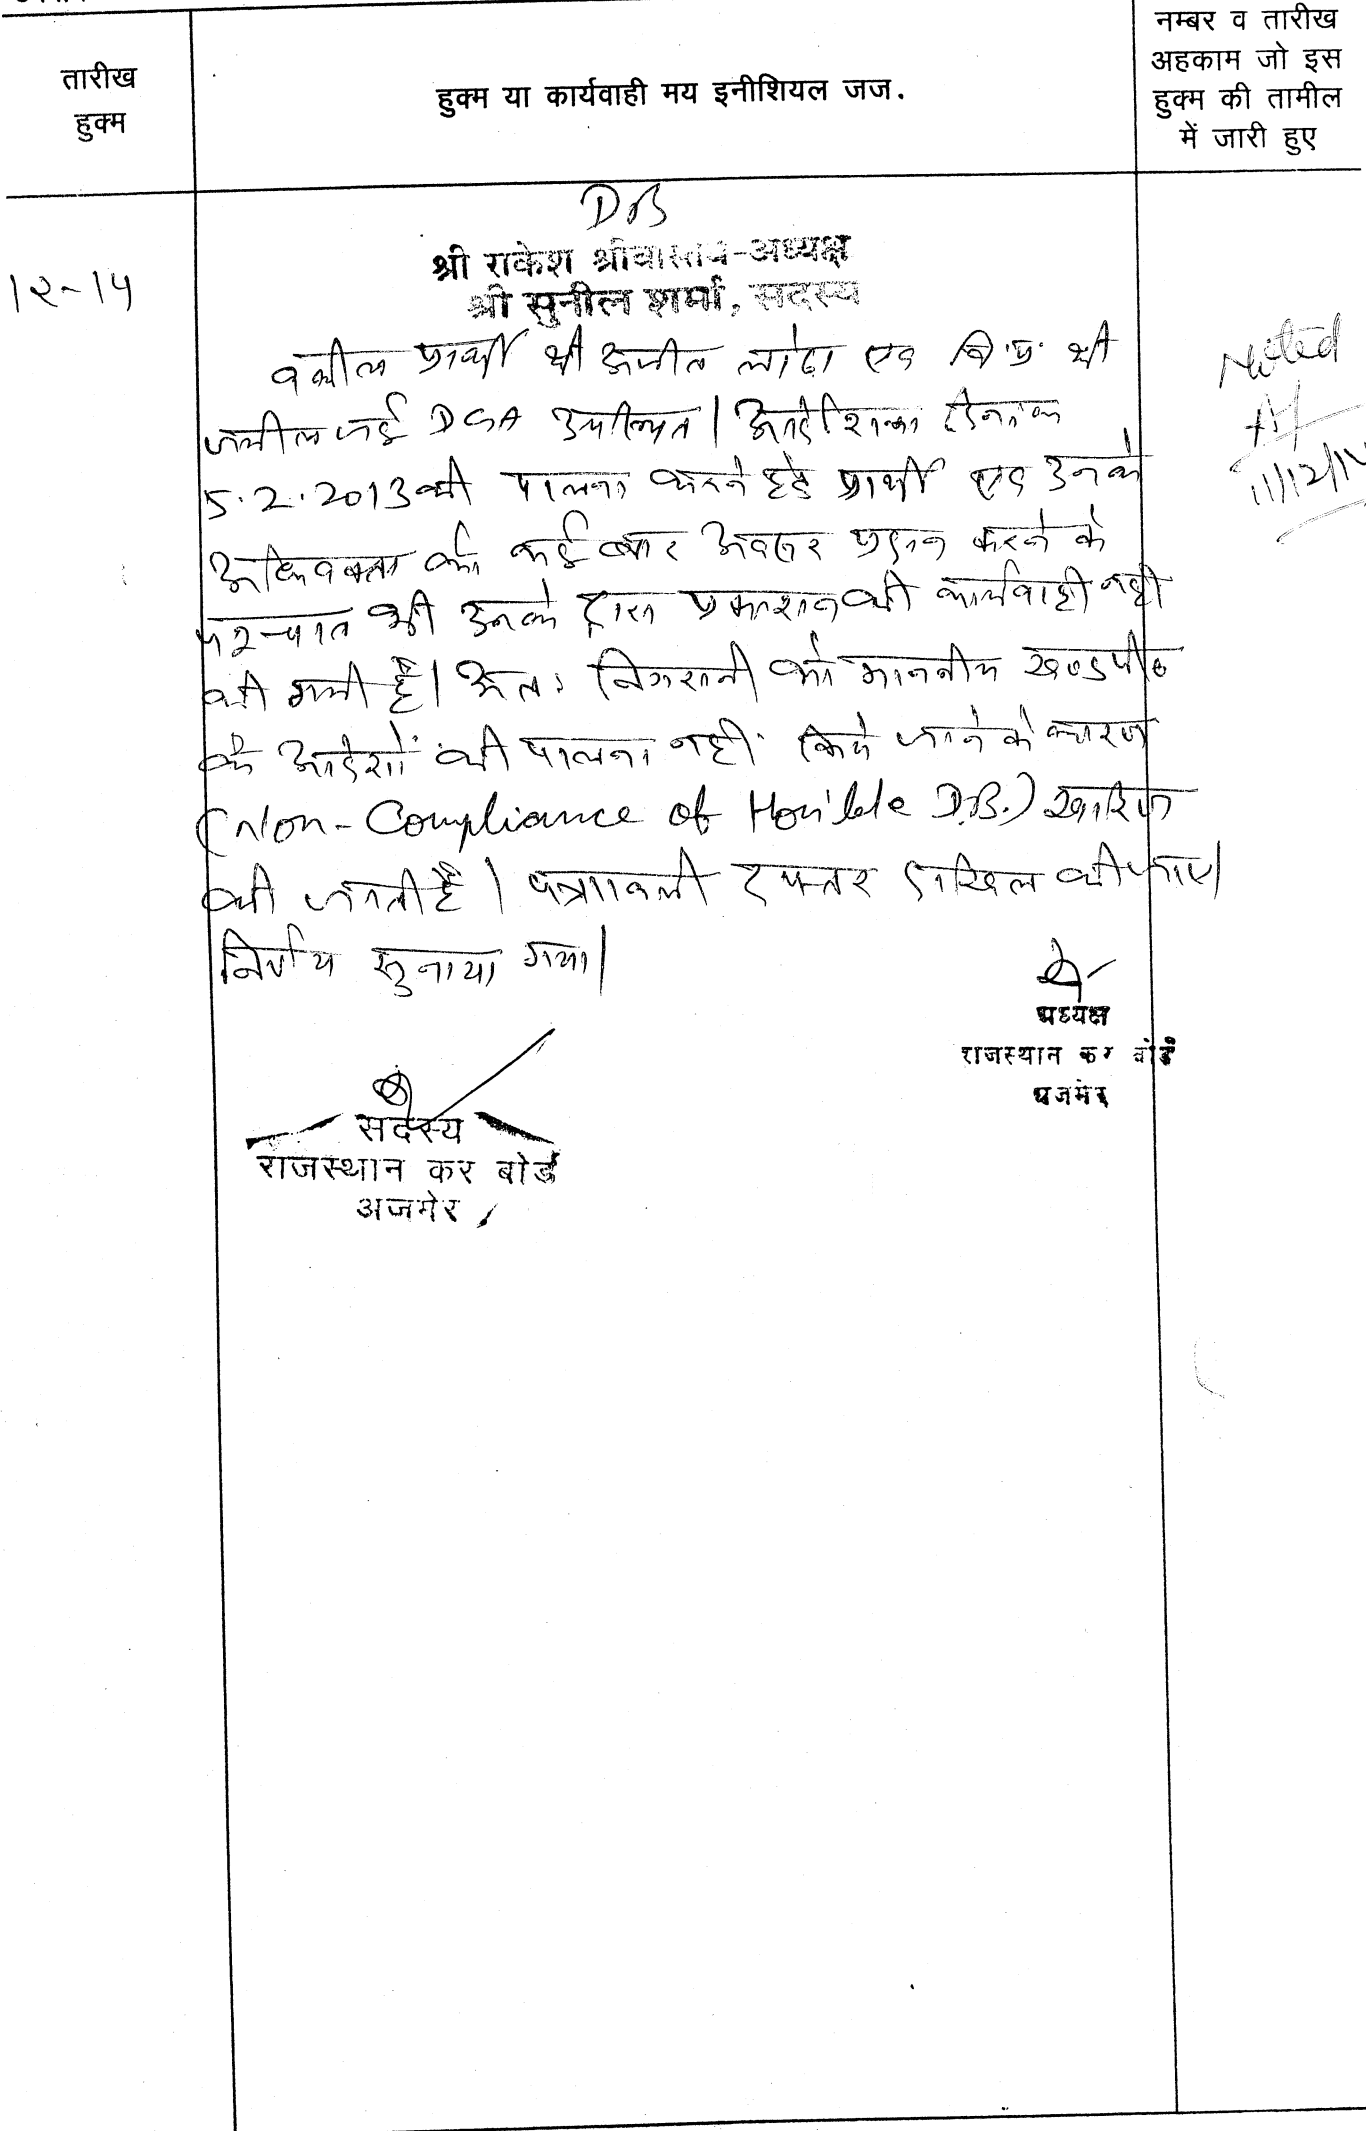 तारीख
हुक्म
हुक्म या कार्यवाही मय इनीशियल जज.
नम्बर व तारीख
अहकाम जो इस
हुक्म की तामील
में जारी हुए
DB
श्री राकेश श्रीवास्तव-अध्यक्ष
श्री सुनील शर्मा, सदस्य
12-14
वकील प्रार्थी श्री अजीत लोढा एवं वि.प्र. श्री
जमील जई DGA उपस्थित। आदेशिका दिनांक
5.2.2013 की पालना करने हेतु प्रार्थी एवं उनके
अधिवक्ता को कई बार अवसर प्रदान करने के
पश्चात भी उनके द्वारा प्रकाशन की कार्यवाही नहीं
की गयी है। अतः निगरानी को माननीय खण्डपीठ
के आदेशों की पालना नहीं किये जाने के कारण
(Non-Compliance of Hon'ble D.B.) खारिज
की जाती है। पत्रावली दफ्तर दाखिल की जाए।
निर्णय सुनाया गया।
Noted
11/12/14
अध्यक्ष
राजस्थान कर बोर्ड
अजमेर
सदस्य
राजस्थान कर बोर्ड
अजमेर